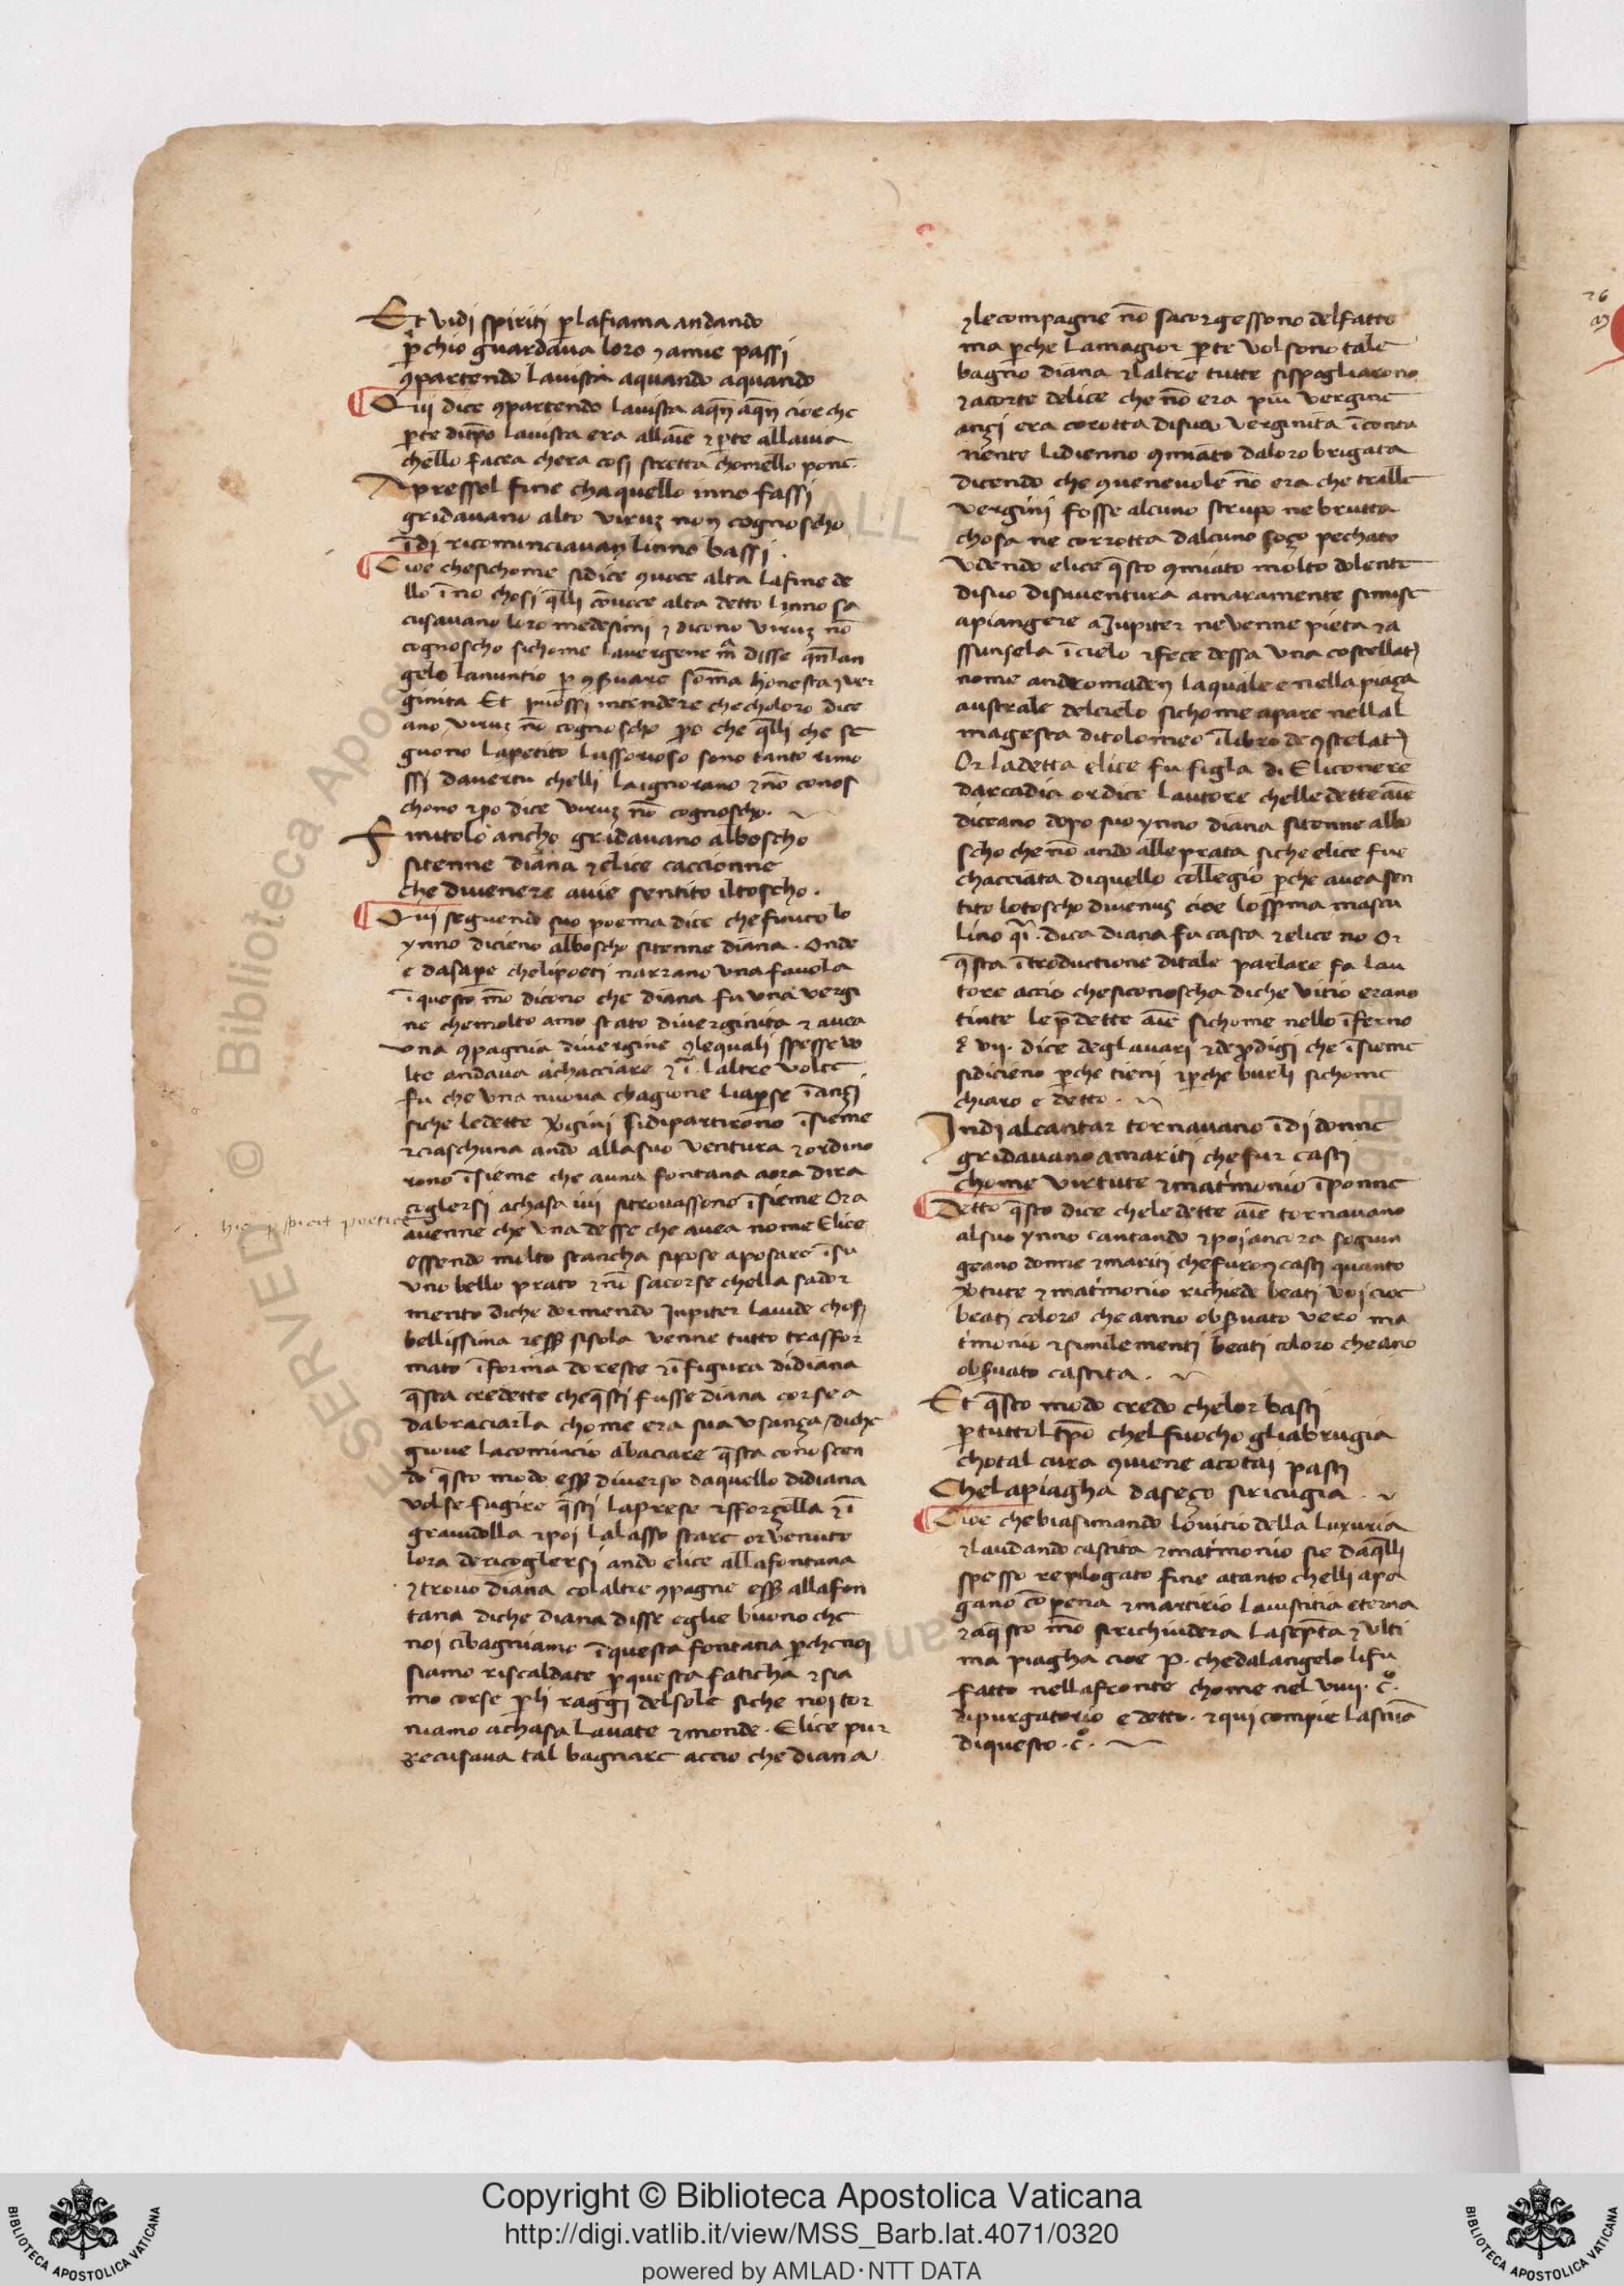 Et vidi spiriti p̱ lafiama andando
p̱chio guardava loro ⁊ amie passi
ꝯpartendo lavista aquando aquando
Qui dice ꝯpartendo lavista aqñ aqñ cioe che
p̱te ditp̄o lavista era allaīe ⁊ p̱te allavia
chello facea chera cosi stretta chomello pone
Apressol fine chaquello inno fassi
gridavano alto viruꝫ non cognoscho
īdi ricominciavan linno bassi.
Cioe chesichome sidice ꝯvoce alta lafine de
llo īno chosi q̄lli cōvoce alta detto linno sa
cusavano loro medesimi ⁊ dicono viruꝫ nō
cognoscho sichome lavergene m̄a disse qñ lan
gelo lanuntio p̱ ꝯẞvare som̄a honesta ⁊ ver
ginita Et puossi intendere checholoro dice
ano viruꝫ nō cognoscho p̱o che q̄lli che se
guono lapetito lussorioso sono tanto rimo
ssi davertu chelli laignorano ⁊ nō conos
chono ⁊ p̱o dice viruꝫ nō cognoscho.
Finitolo ancho gridavano alboscho
sitenne diana ⁊ elice caccionne
che divenere avie sentito iltoscho.
Qui seguendo suo poema dice chefinito lo
ynno dicieno alboscho sitenne diana. Onde
e dasap̱e chelipoeti narrano una favola
ī questo mō dicono che diana fu una vergi
ne chemolto amo stato diverginita ⁊ avea
una ꝯpagnia divergine ꝯlequali spesse vo
lte andava achacciare ⁊ ī laltre volte
fu che una nuova chagione liap̱se īanzi
siche ledette v̄gini sidipartirono īsieme
⁊ ciaschuna ando allasuo ventura ⁊ ordino
rono īsieme che auna fontana aora dira
coglersi achasa ivi sitrovassono īsieme Ora
avenne che una desse che avea nome Elice
essendo molto stancha sipose aposare īsu
uno bello prato ⁊ nō sacorse chella sador
mento diche dormendo Jupiter lavide chosi
bellissima ⁊ esẞ sisola venne tutto trasfor
mato īforma doreste ⁊ īfigura didiana
q̄sta credette cheq̄sti fusse diana corse a
dabraciarla chome era sua usanza / diche
giove lacomincio abaciare q̄sta conoscen
do q̄sto modo esẞ diverso daquello didiana
volse fugire q̄sti laprese ⁊ sforzolla ⁊ ī
gravidolla ⁊ poi lalasso stare or venuto
lora dericoglersi ando elice allafontana
⁊ trovo diana colaltre ꝯpagne esẞ allafon
tana diche diana disse eglie buono che
noi cibagniamo īquesta fontana p̱che noi
siamo riscaldate p̱ questa faticha ⁊ sia
mo corse p̱ li raggi delsole siche noi tor
niamo achasa lavate ⁊ monde. Elice pur
recusava tal bagnare accio che diana
hic p̱ spicit poetice
⁊ lecompagne nō sacorgessono delfatto
ma p̱che lamagior p̱te volsono tale
bagno diana ⁊ laltre tutte sispogliarono
⁊ acorte delice che nō era piu vergine
anzi era corotta disua verginita īconta
nente lidienno ꝯmiato daloro brigata
dicendo che ꝯvenevole nō era che tralle
vergini fosse alcuno strupo ne brutta
chosa ne corrotta dalcuno sozo pechato
Vdendo elice q̄sto ꝯmiato molto dolente
disuo disaventura amaramente simise
apiangere a Jupiter nevenne pieta ⁊ a
ssunsela ī cielo ⁊ fece dessa una costellatꝭ
nome andromaden laquale e nella piaga
australe delcielo sichome apare nellal
magesta ditolomeo īlibro de ꝯstelatꝭ
Or ladetta elice fu figla di Eliconerē
darcadia or dice lautore chelle dette aīe
diceano dopo suo ynno diana sitenne albo
scho che nō ando alle prata siche elice fue
chacciata diquello collegio p̱che avea sen
tito lotoscho divenus cioe lossp̱ma mascu
lino qī dica diana fu casta ⁊ elice no Or
q̄sta ītroductione ditale parlare fa lau
tore accio chesiconoscha diche vitio erano
tinte le p̄dette aīe sichome nello īferno
c̊ vii. dice deglavari ⁊ deprodigi che īsieme
sidicieno p̱che tieni ⁊ p̱che burli sichome
chiaro e detto.
Indi alcantar tornavano īdi donne
gridavano amariti che fur casti
chome virtute ⁊ matrimonio īponne
Detto q̄sto dice cheledette aīe tornavano
alsuo ynno cantando ⁊ poi ancora sogiun
geano donne ⁊ mariti chefuron casti quanto
v̄tute ⁊ matrimonio richiede beati voi cioe
beati coloro cheanno obẞvato vero ma
trimonio ⁊ similementi beati coloro cheano
obẞvato castita.
Et q̄sto modo credo chelor basti
p̱ tuttoltp̄o chelfuocho gliabrugia
chotal cura ꝯviene acotai pasti
Chelapiagha dasezo siricugia.
Cioe chebiasimando lovitio della luxuria
⁊ laudando castita ⁊ matrimonio sie daq̄lli
spesso repilogato fine atanto chelli apa
gano cō pena ⁊ martirio laiustitia eterna
⁊ aq̄sto mō sirichiudera lasep̄ta ⁊ ulti
ma piagha cioe p. chedalangelo lifu
fatto nellafronte chome nel viiii. c̊.
dipurgatorio e detto. ⁊ qui compie lasniā
diquesto. c̊.
26
Copyright © Biblioteca Apostolica Vaticana
http://digi.vatlib.it/view/MSS_Barb.lat.4071/0320
powered by AMLAD·NTT DATA
BIBLIOTECA APOSTOLICA VATICANA
BIBLIOTECA APOSTOLICA VATICANA